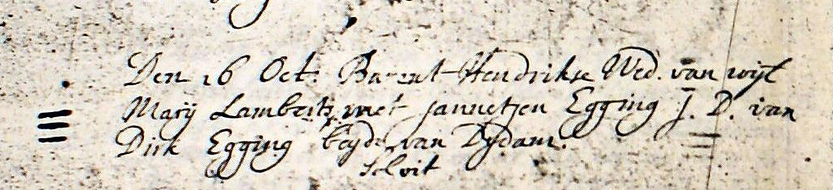 Den 16 Oct: Barent Hendrikse Wed. van wijl
Marij Lambertz met Jannetjen Egging J. D. van
Dirk Egging beyde van Dydam.
solvit